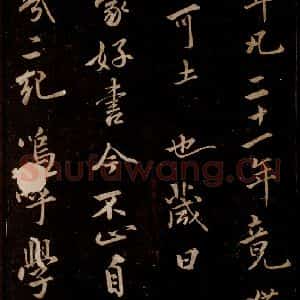 年凡二十一年竟
可土也歲日
家好書今不止自
二紀嗚呼學
Shufawang.cn